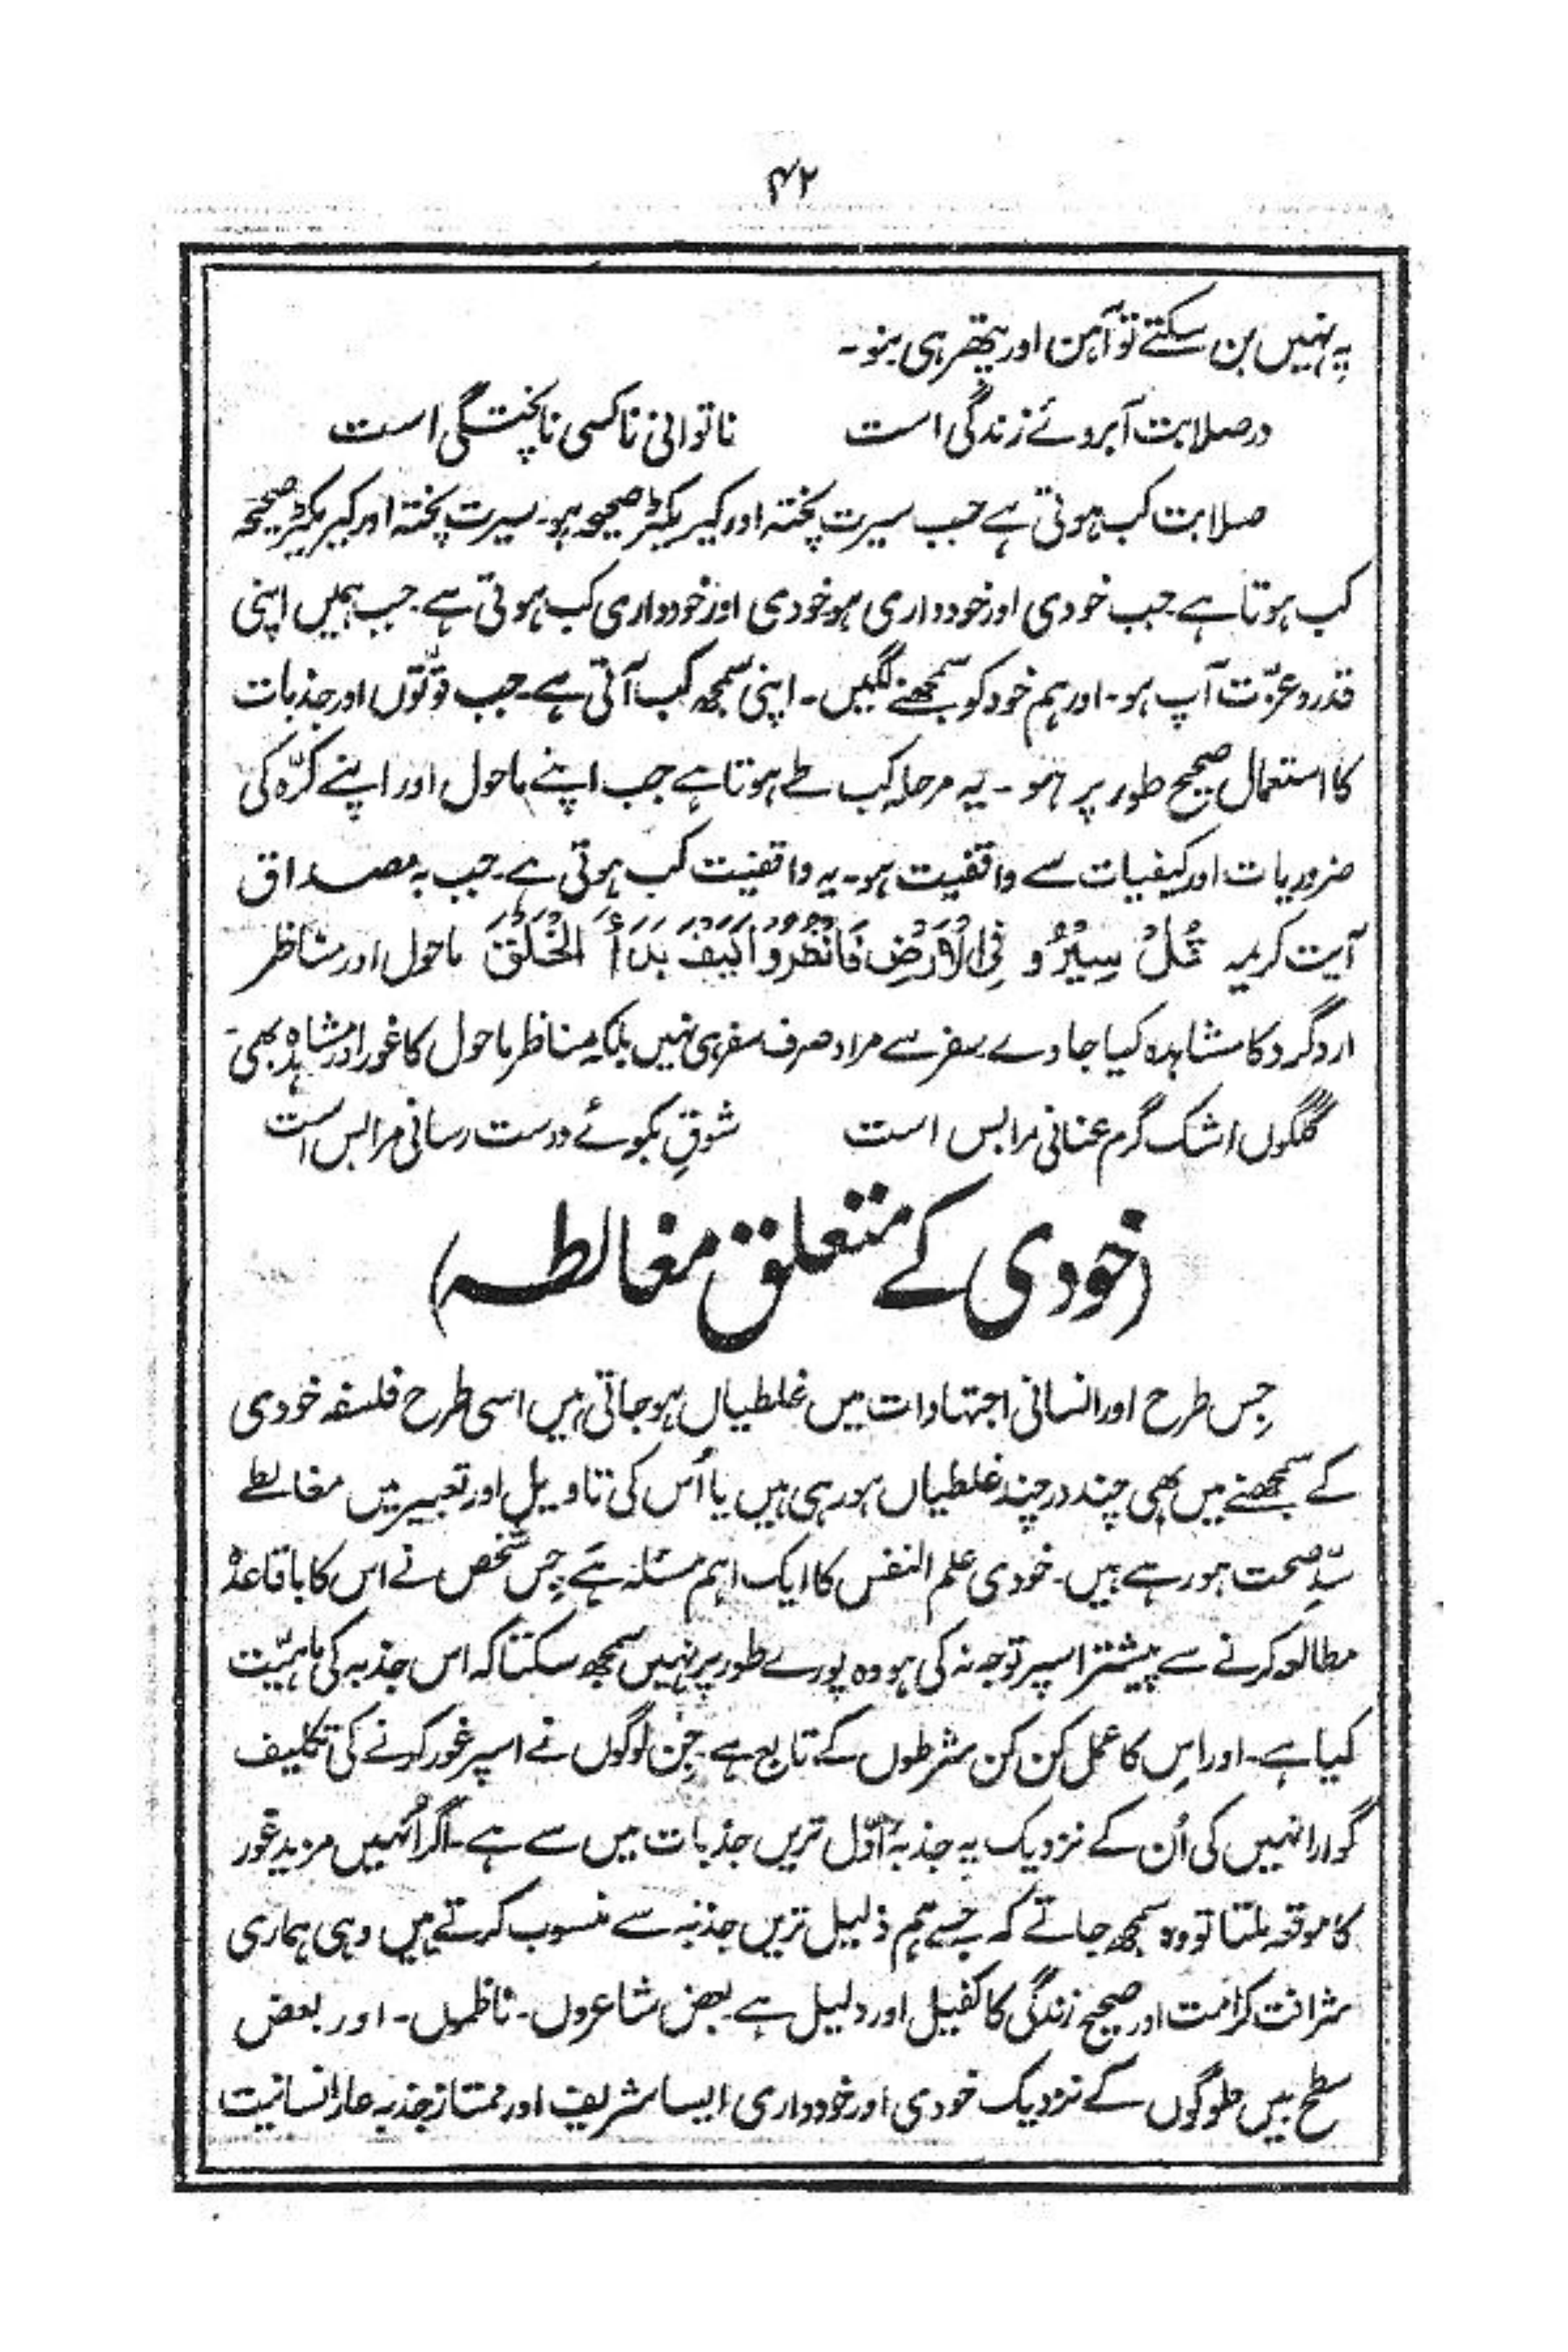 ۴۲
یہ نہیں بن سکتے تو آہن اور پتھر ہی بنو۔
در صلابت آبروئے زندگی است ناتوانی ناکسی ناپختگی است
صلابت کب ہوتی ہے جب سیرت پختہ اور کیریکٹر صحیحہ ہو۔ سیرت پختہ اور کیریکٹر صحیحہ
کب ہوتا ہے جب خودی اور خودداری ہو خودی اور خودداری کب ہوتی ہے۔ جب ہمیں اپنی
قدر و عزّت آپ ہو۔ اور ہم خود کو سمجھنے لگیں۔ اپنی سمجھ کب آتی ہے۔ جب قوّتوں اور جذبات
کا استعمال صحیح طور پر ہو۔ یہ مرحلہ کب طے ہوتا ہے جب اپنے ماحول اور اپنے کرّہ کی
ضروریات اور کیفیات سے واقفیت ہو۔ یہ واقفیت کب ہوتی ہے۔ جب بہ مصداق
آیت کریمہ قُلْ سِیْرُو فِی الْاَرْضِ فَانْظُرُوْا کَیْفَ بَدَأَ الْخَلْقَ ماحول اور مناظر
ارد گرد کا مشاہدہ کیا جاوے سفر سے مراد صرف سفر ہی نہیں بلکہ مناظر ماحول کا غور اور مشاہدہ بھی۔
گلگوں اشک گرم عنانی مرا بس است شوقِ بکوئے دوست رسانی مرا بس است
(خودی کے متعلق مغالطہ)
جِس طرح اور انسانی اجتہادات میں غلطیاں ہو جاتی ہیں اسی طرح فلسفہ خودی
کے سمجھنے میں بھی چند در چند غلطیاں ہو رہی ہیں یا اُس کی تاویل اور تعبیر میں مغالطے
سدِّ صحت ہو رہے ہیں۔ خودی علم النفس کا ایک اہم مسئلہ ہَے جِس شخص نے اس کا باقاعدہ
مطالعہ کرنے سے پیشتر اسپر توجہ نہ کی ہو وہ پورے طور پر نہیں سمجھ سکتا کہ اس جذبہ کی ماہیّت
کیا ہے۔ اور اسِ کا عمل کن کن شرطوں کے تابع ہے۔ جِن لوگوں نے اسپر غور کرنے کی تکلیف
گوارا نہیں کی اُن کے نزدیک یہ جذبہ اوّل ترین جذبات میں سے ہے۔ اگر اُنہیں مزید غور
کا موقعہ ملتا تو وہ سمجھ جاتے کہ جسے ہم ذلیل ترین جذبہ سے منسوب کرتے ہیں وہی ہماری
شرافت کرامت اور صحیح زندگی کا کفیل اور دلیل ہے۔ بعض شاعروں۔ ناظموں۔ اور بعض
سطح بیں لوگوں کے نزدیک خودی اور خودداری ایسا شریف اور ممتاز جذبہ عار انسانیت